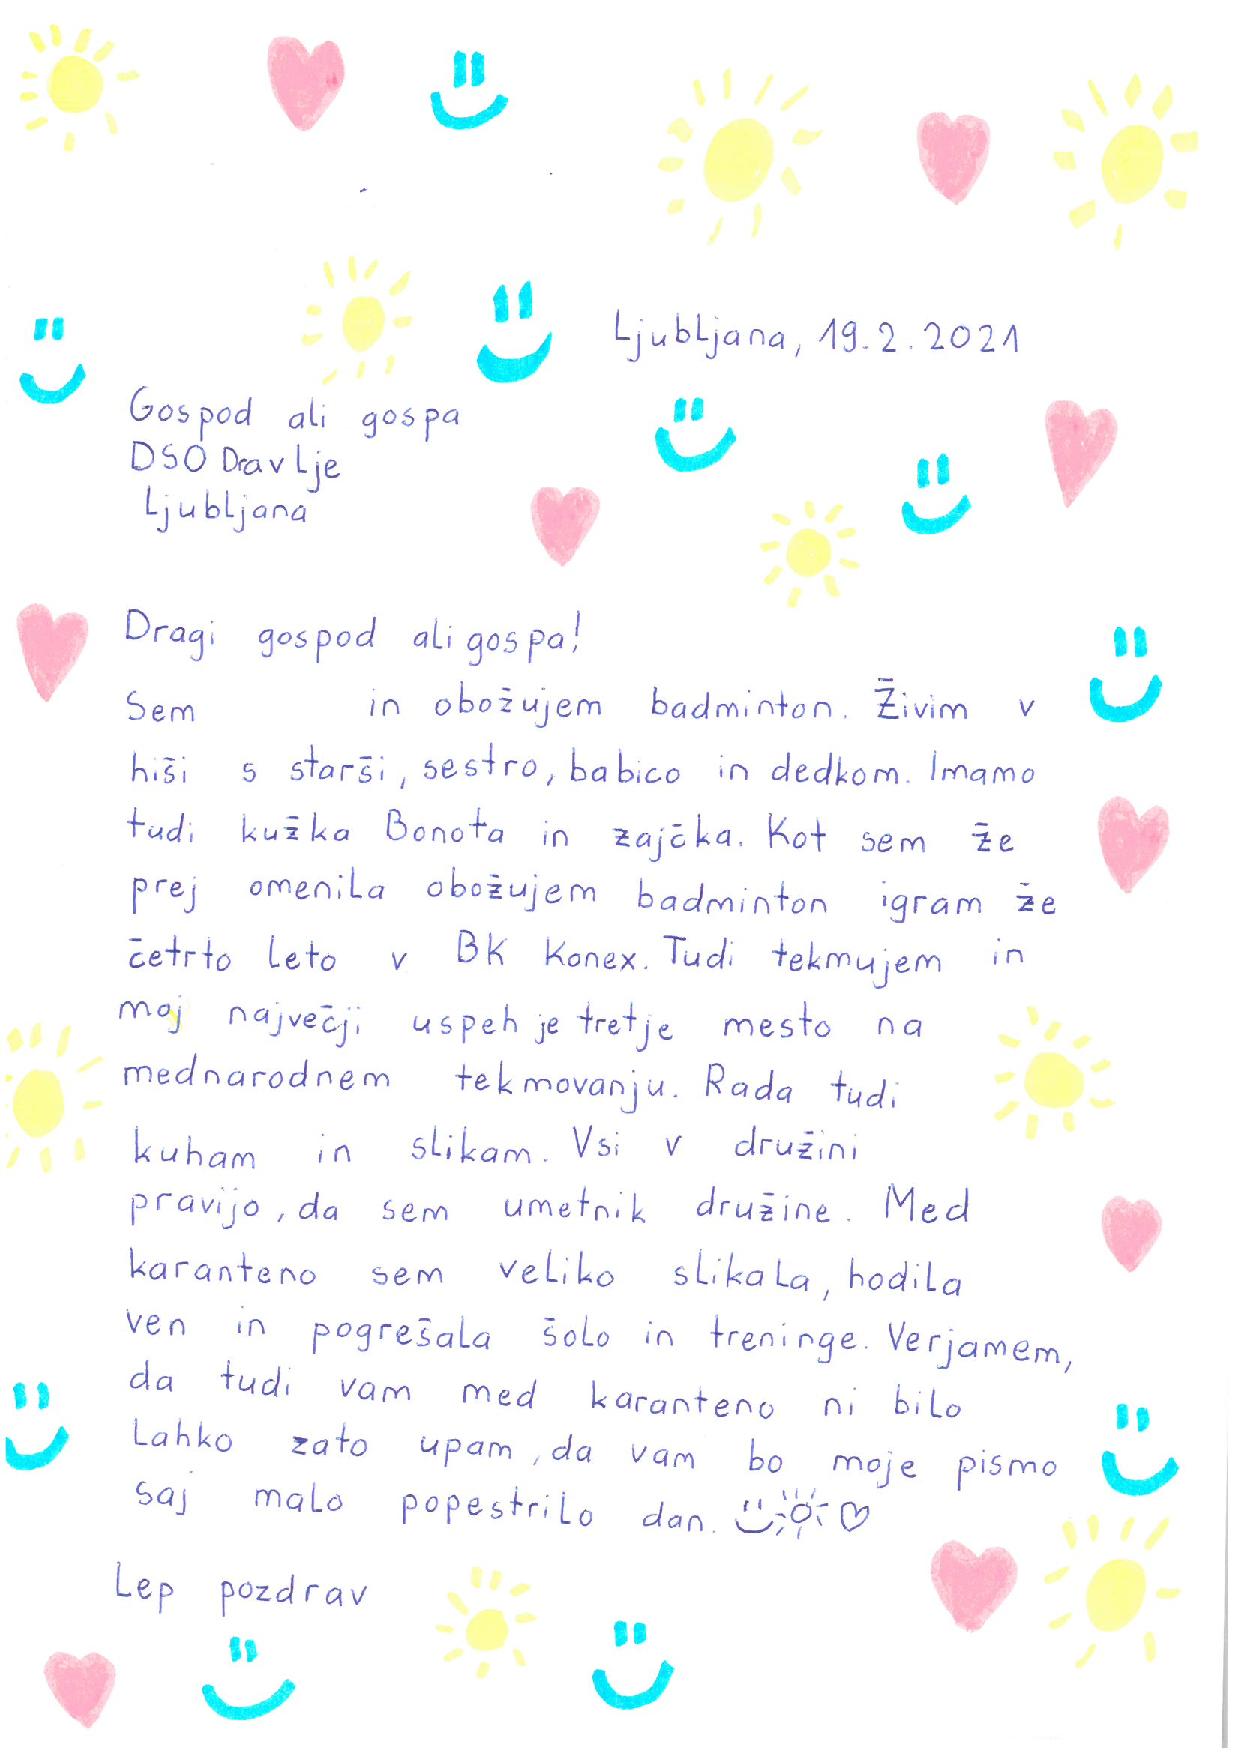 Ljubljana, 19.2.2021
Gospod ali gospa
DSO Dravlje
Ljubljana
Dragi gospod ali gospa!
Sem in obožujem badminton. Živim v
hiši s starši, sestro, babico in dedkom. Imamo
tudi kužka Bonota in zajčka. Kot sem že
prej omenila obožujem badminton igram že
četrto leto v BK Konex. Tudi tekmujem in
moj največji uspeh je tretje mesto na
mednarodnem tekmovanju. Rada tudi
kuham in slikam. Vsi v družini
pravijo, da sem umetnik družine. Med
karanteno sem veliko slikala, hodila
ven in pogrešala šolo in treninge. Verjamem,
da tudi vam med karanteno ni bilo
lahko zato upam, da vam bo moje pismo
saj malo popestrilo dan.
Lep pozdrav